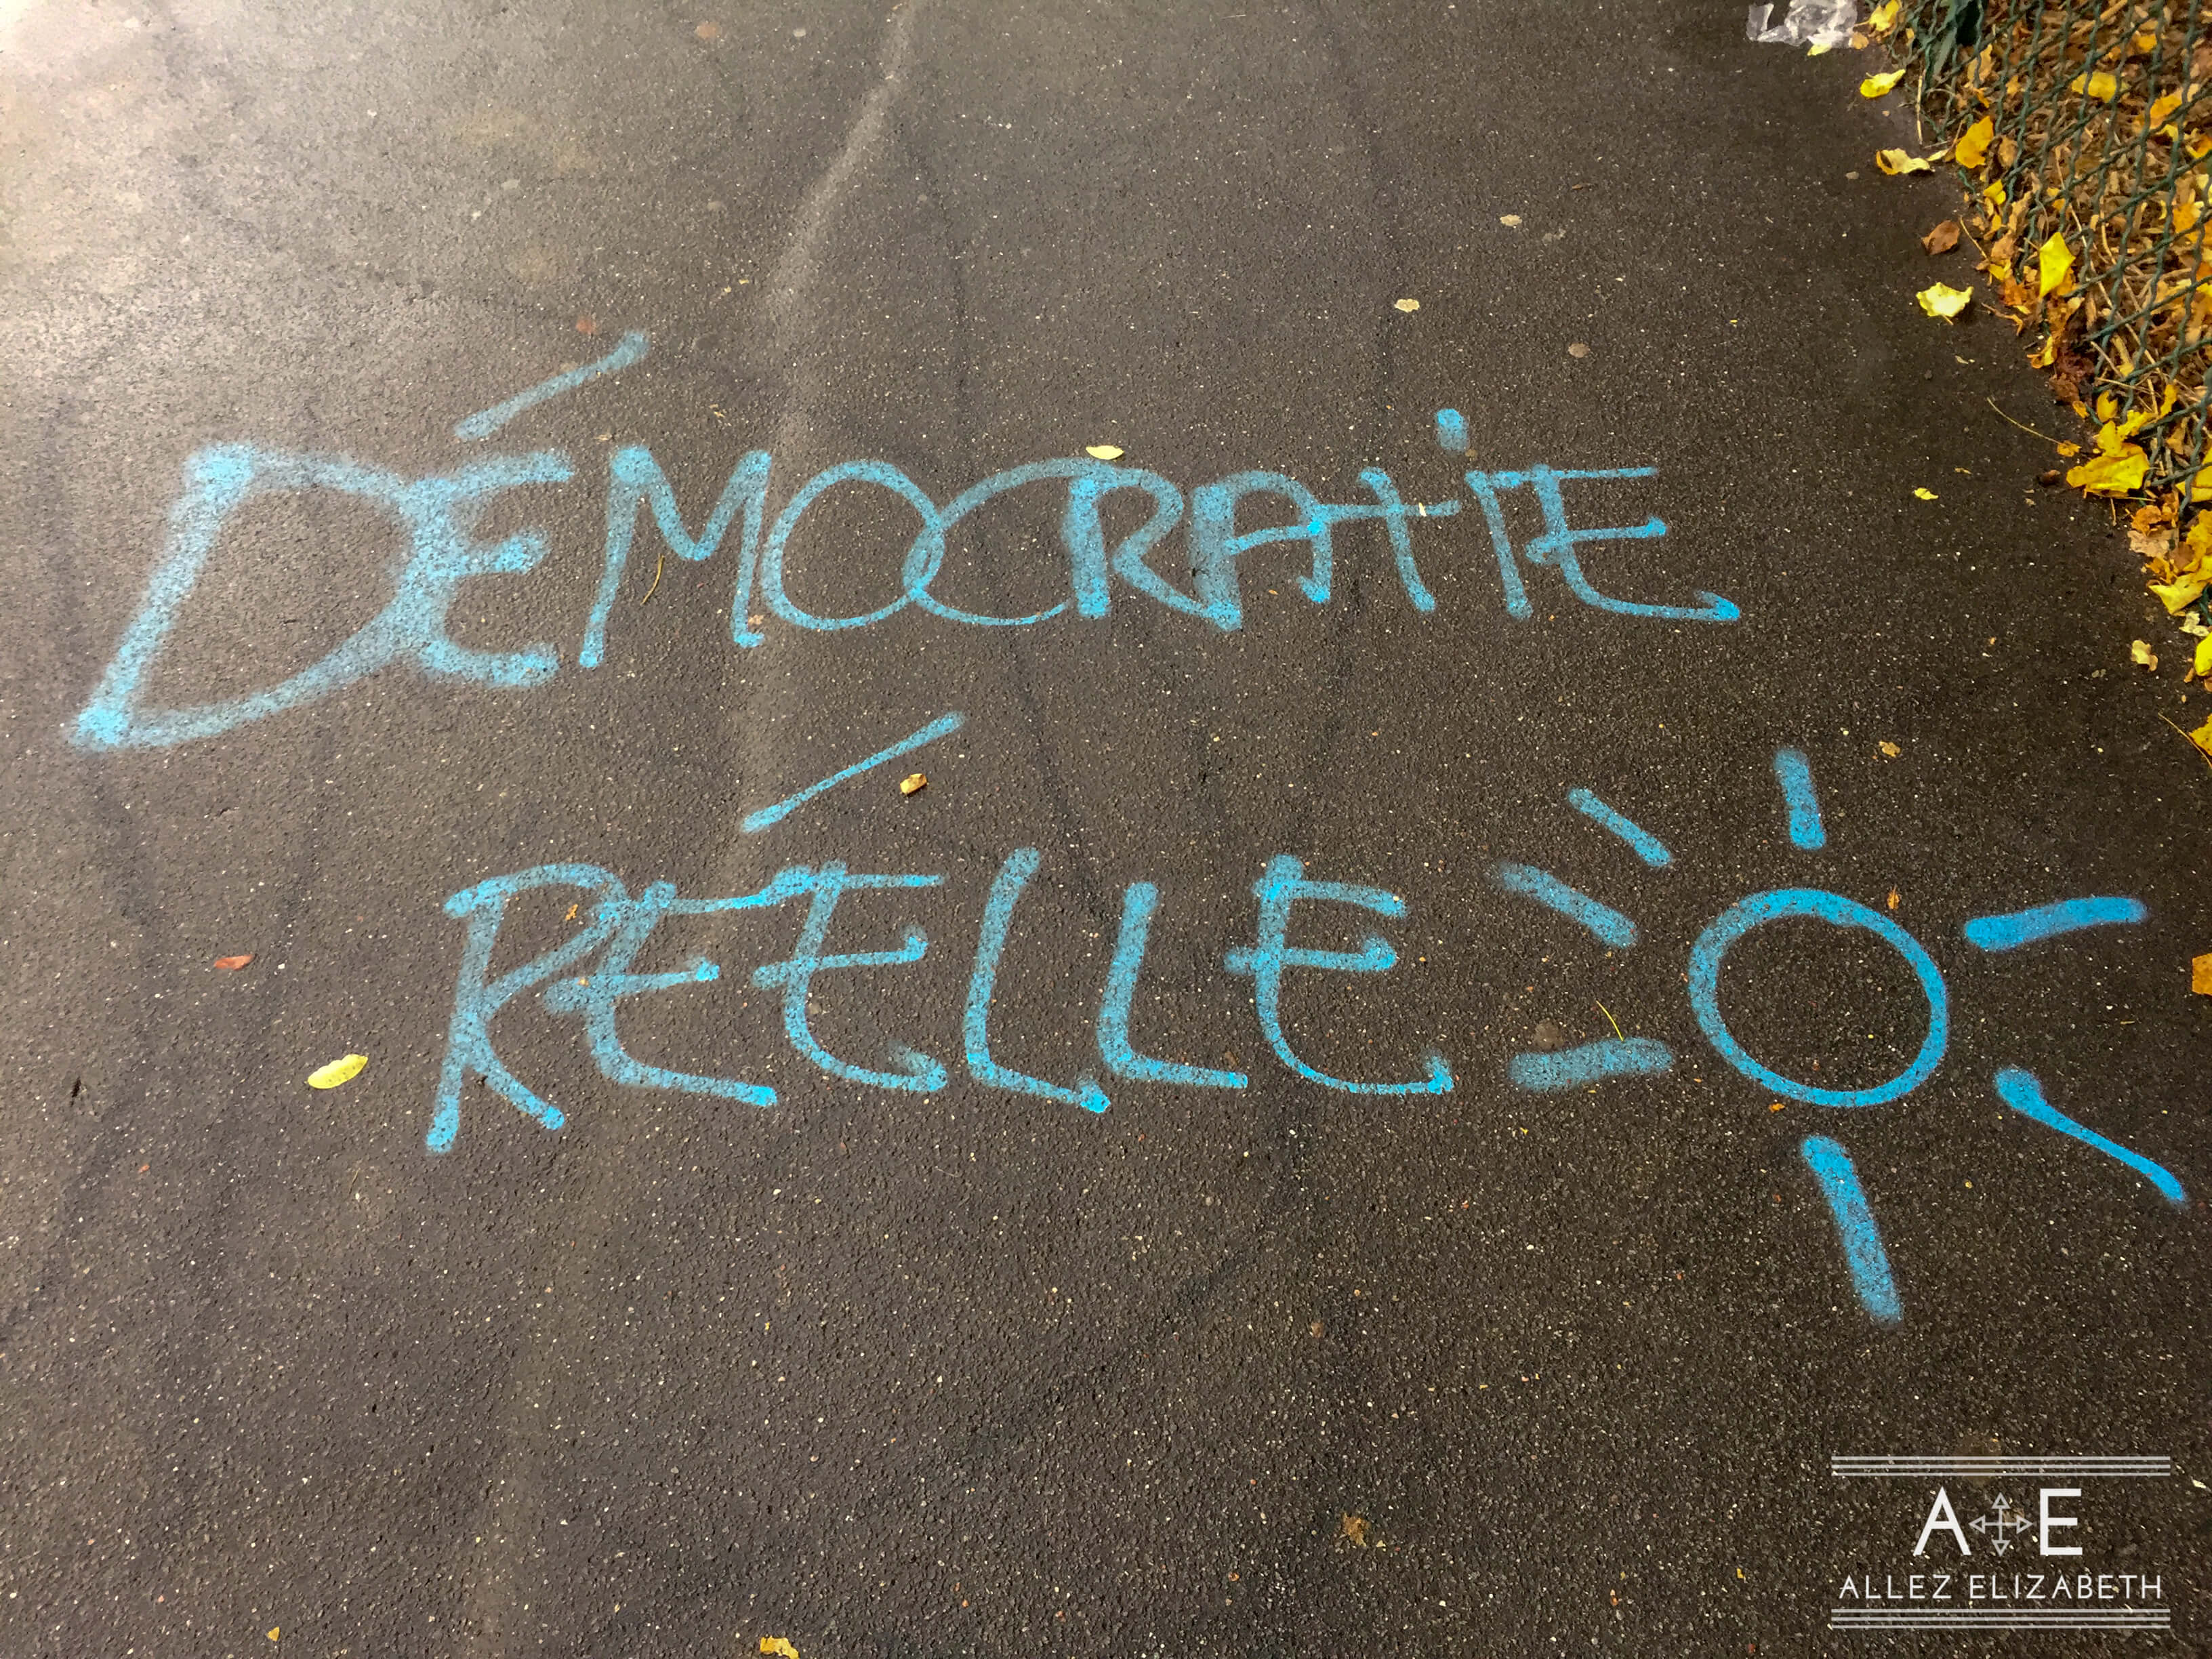 DÉMOCRATiE
RÉELLE
A E
ALLEZ ELIZABETH